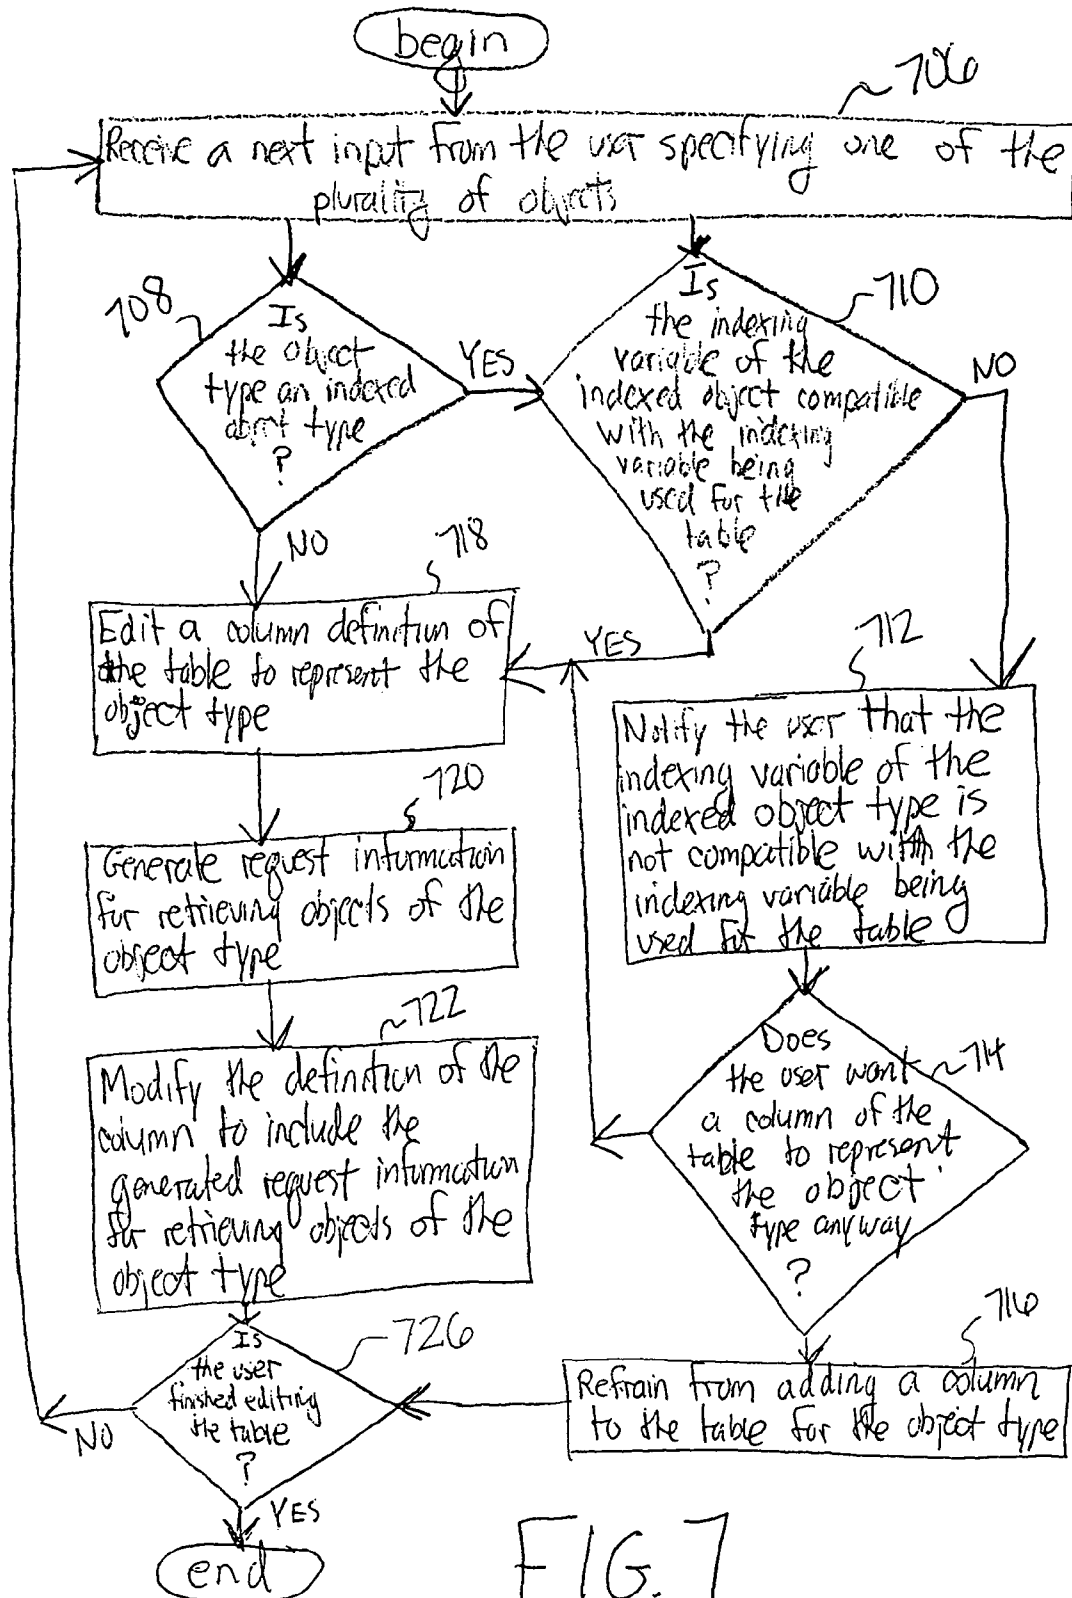 begin
706
Receive a next input from the user specifying one of the
plurality of objects
708
Is
the object
type an indexed
object type
?
YES
NO
710
Is
the indexing
variable of the
indexed object compatible
with the indexing
variable being
used for the
table
?
NO
YES
718
Edit a column definition of
the table to represent the
object type
712
Notify the user that the
indexing variable of the
indexed object type is
not compatible with the
indexing variable being
used for the table
720
Generate request information
for retrieving objects of the
object type
722
Modify the definition of the
column to include the
generated request information
for retrieving objects of the
object type
714
Does
the user want
a column of the
table to represent
the object
type anyway
?
716
Refrain from adding a column
to the table for the object type
726
Is
the user
finished editing
the table
?
NO
YES
end
FIG. 7